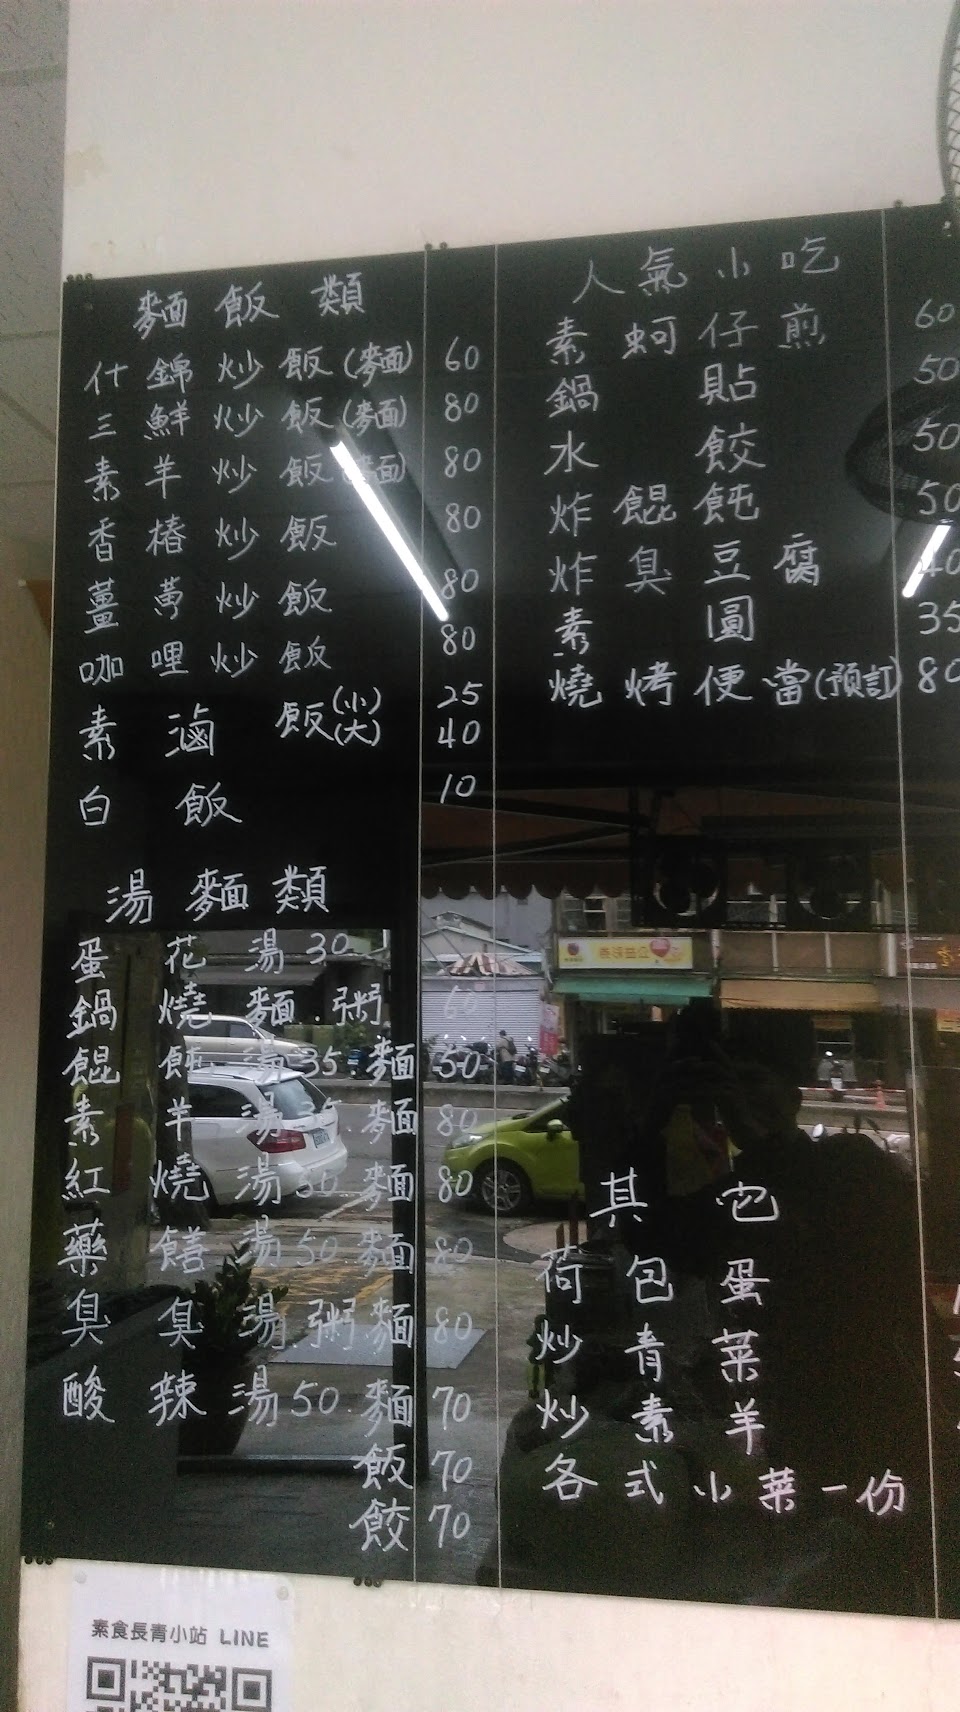 麵飯類
什錦炒飯(麵) 60
三鮮炒飯(麵) 80
素羊炒飯(麵) 80
香椿炒飯 80
薑黃炒飯 80
咖哩炒飯 80
素滷飯(小) 25
(大) 40
白飯 10
湯麵類
蛋花湯30
鍋燒麵.粥 60
餛飩湯35.麵 50
素羊湯35.麵 80
紅燒湯 麵 80
藥膳湯50麵 80
臭臭湯.粥.麵 80
酸辣湯50.麵 70
飯 70
餃 70
人氣小吃
素蚵仔煎 60
鍋貼 50
水餃 50
炸餛飩 50
炸臭豆腐 40
素圓 35
燒烤便當(預訂) 80
其它
荷包蛋
炒青菜
炒素羊
各式小菜一份
素食長青小站 LINE